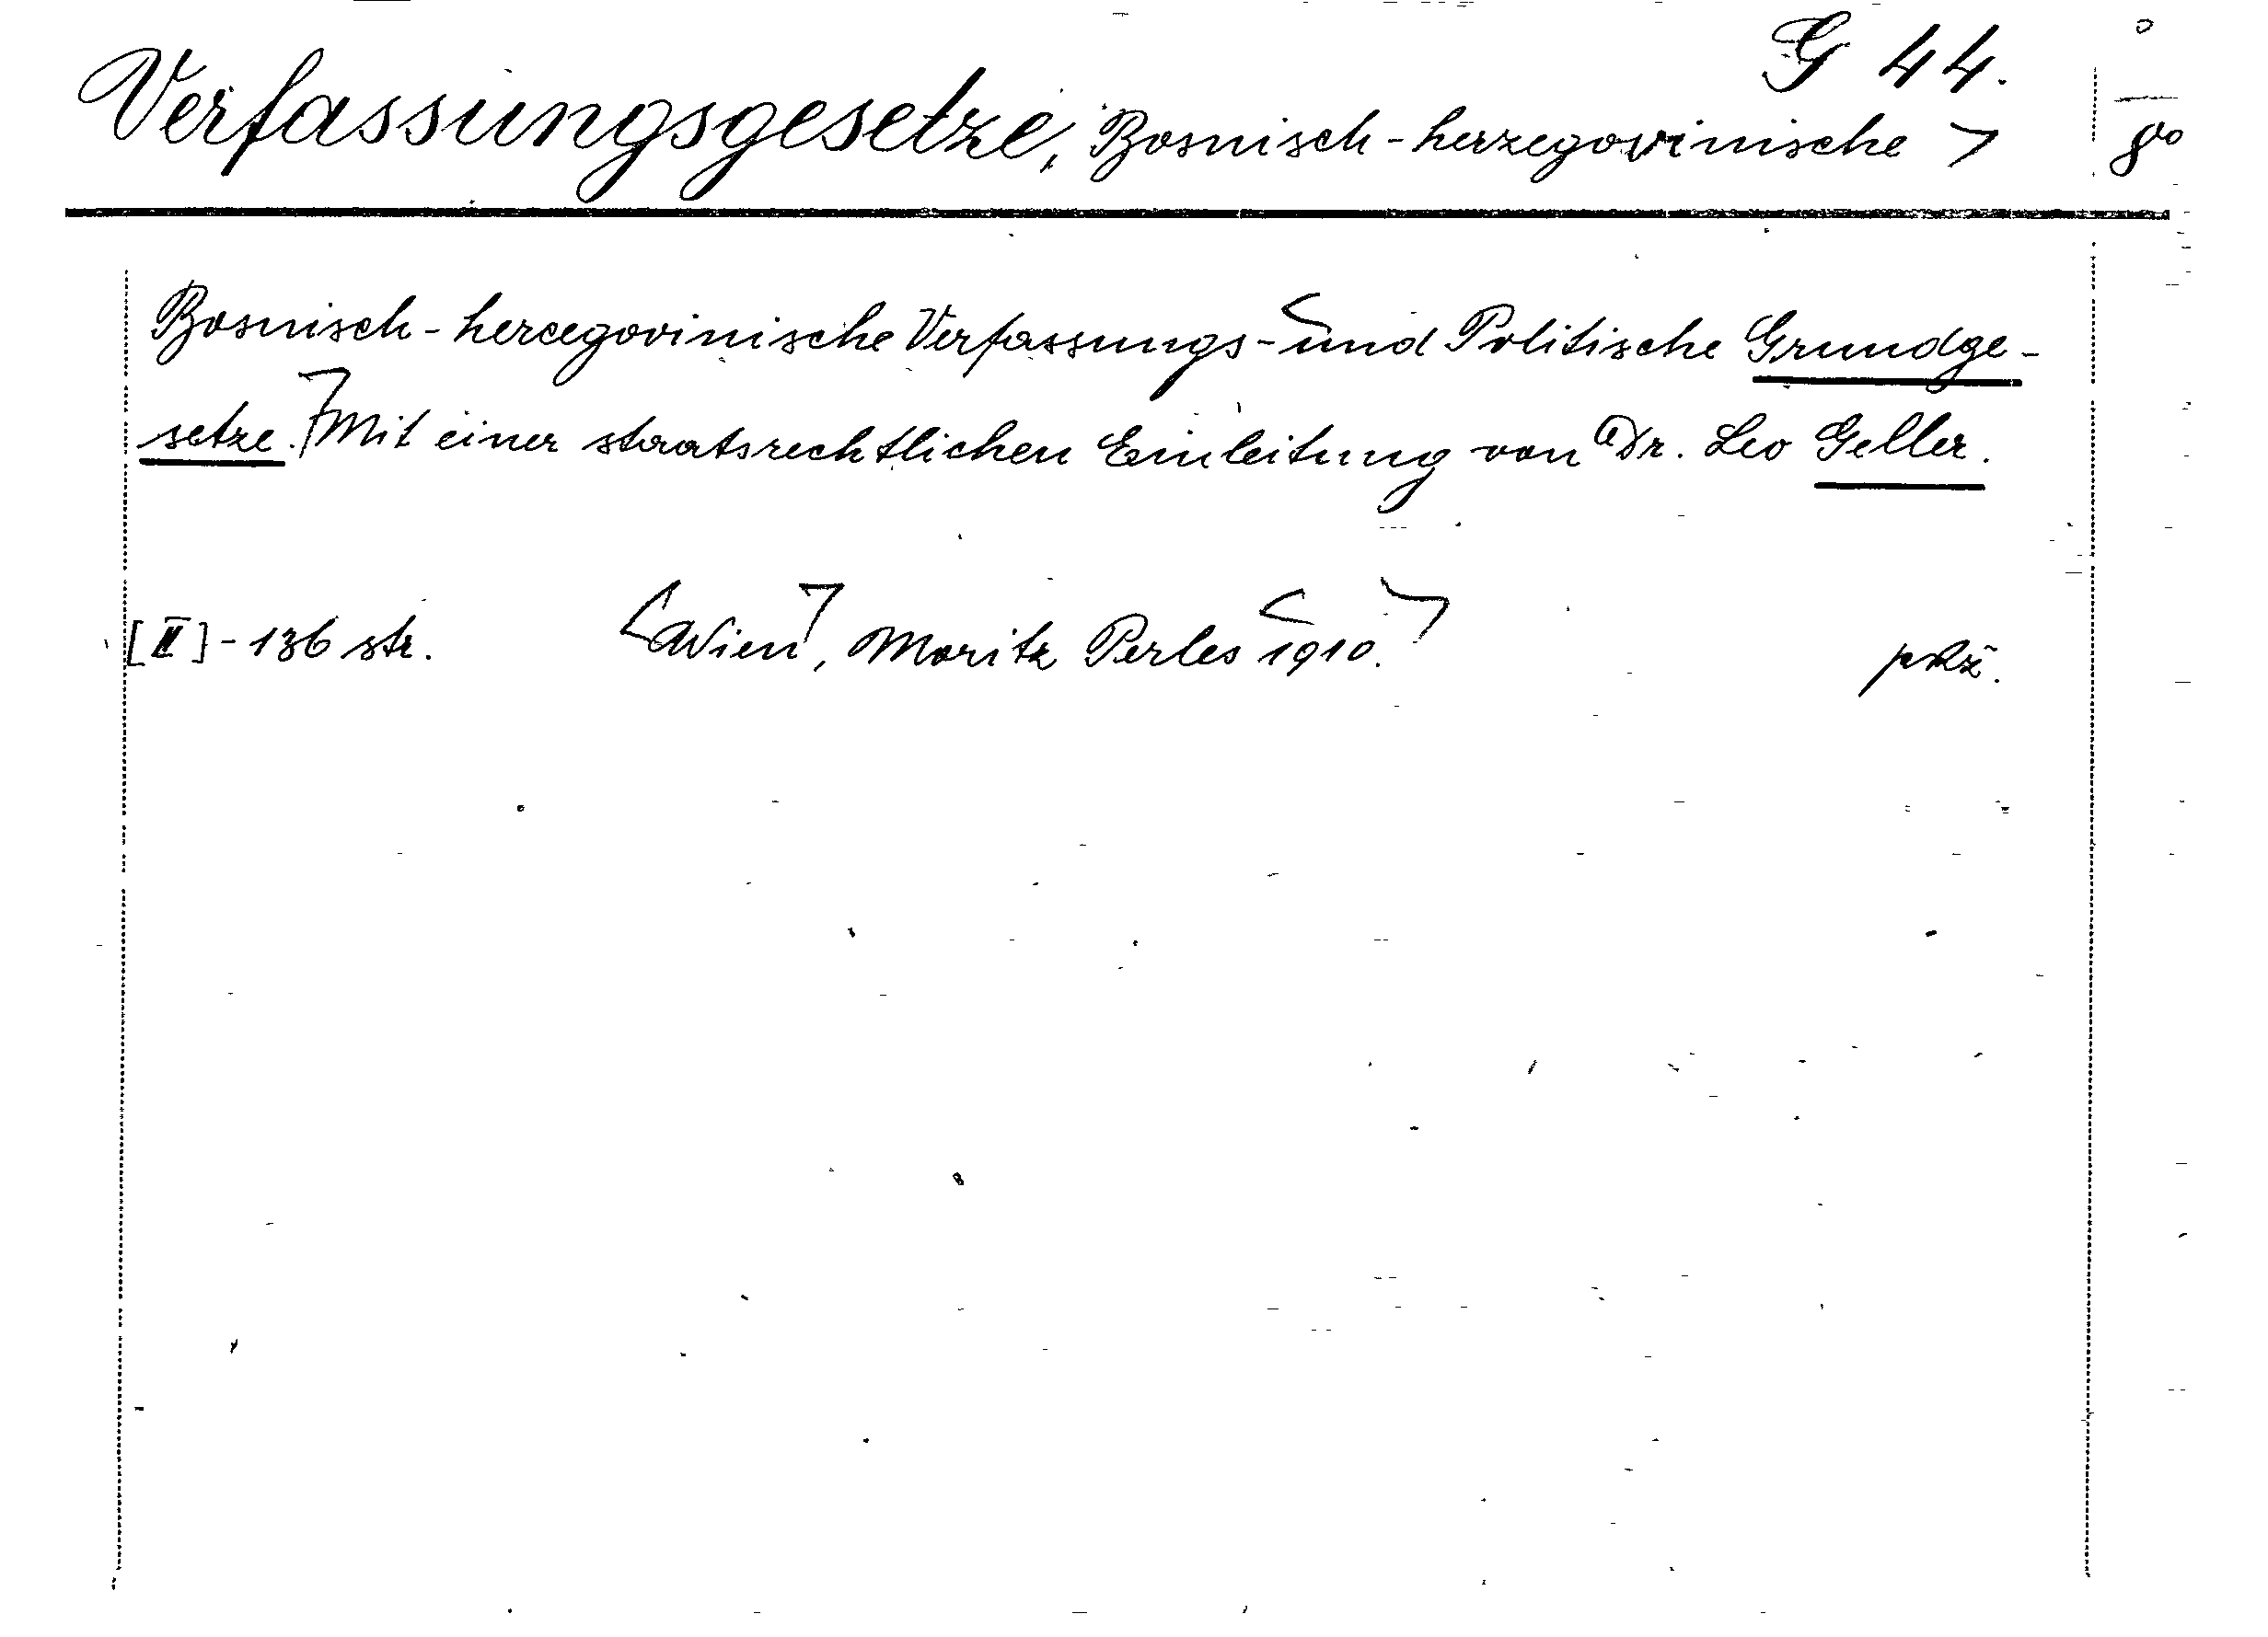 G 44.
Verfassungsgesetze, Bosnisch-herzegovinische > 8°
Bosnisch-hercegovinische Verfassungs- <und Politische Grundge-
setze.> Mit einer staatsrechtlichen Einleitung von Dr. Leo Geller.
[II] - 136 str. <Wien>, Moritz Perles <1910.>